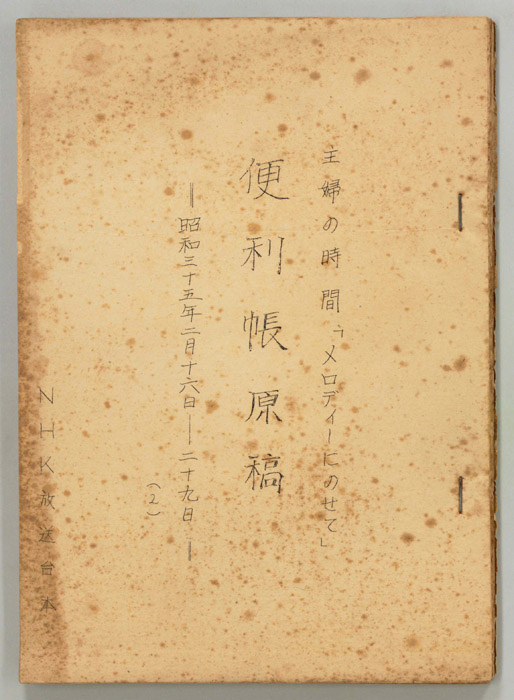 主婦の時間「メロディーにのせて」
便利帳原稿
―昭和三十五年二月十六日―二十九日―
(2)
NHK放送台本